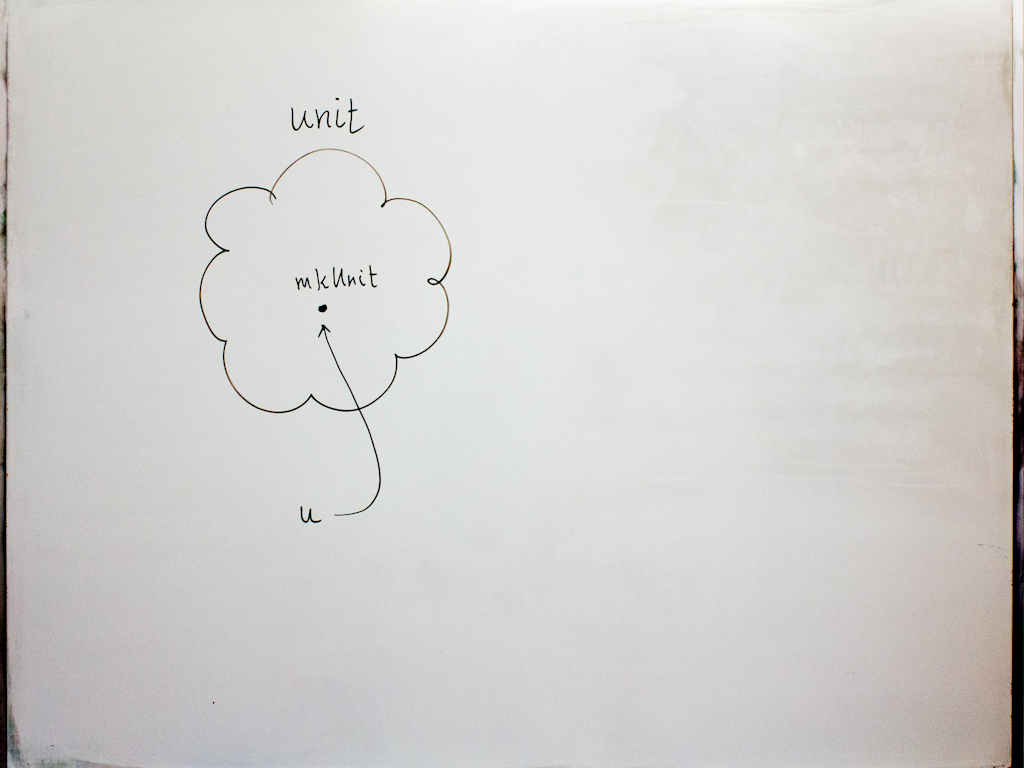 unit
mkUnit
u